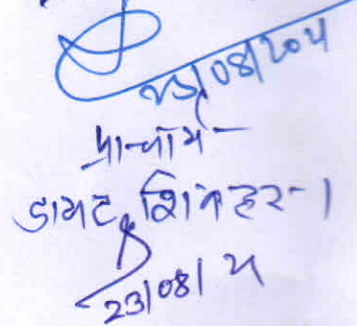 23/08/2024
प्राचार्य -
डायट, शिवहर - ।
23/08/24